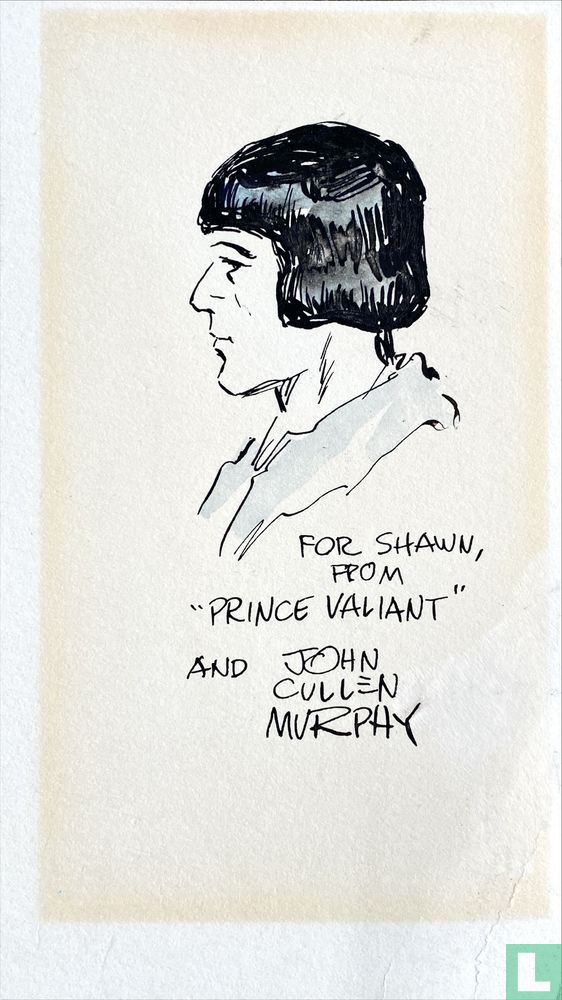 FOR SHAWN,
FROM
"PRINCE VALIANT"
AND JOHN
CULLEN
MURPHY
L